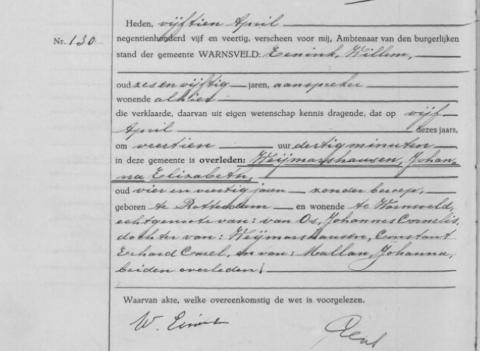 Heden, vijftien April
negentienhonderd vijf en veertig, verscheen voor mij, Ambtenaar van den burgerlijken
Nr. 130.
stand der gemeente WARNSVELD: Eenink, Willem,
oud zesenvijftig jaren, aanspreker
wonende alhier
die verklaarde, daarvan uit eigen wetenschap kennis dragende, dat op vijf
April dezes jaars,
om veertien uur dertig minuten
in deze gemeente is overleden: Weijmarshausen, Johan-
na Elizabeth,
oud vier en veertig jaren zonder beroep,
geboren te Rotterdam en wonende te Warnsveld,
echtgenoote van: van Os, Johannes Cornelis,
dochter van: Weijmarshausen, Constant
Erhard Carel, en van: Mallan, Johanna,
beiden overleden.
Waarvan akte, welke overeenkomstig de wet is voorgelezen.
W. Eenink